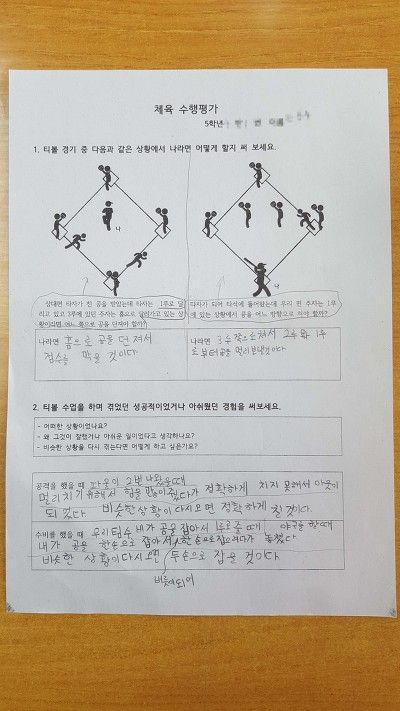 체육 수행평가
5학년
1. 티볼 경기 중 다음과 같은 상황에서 나라면 어떻게 할지 써 보세요.
나
나
상대편 타자가 친 공을 받았는데 타자는 1루로 달
리고 있고 3루에 있던 주자는 홈으로 달려가고 있는 상
황이라면 어느 쪽으로 공을 던져야 할까?
타자가 되어 타석에 들어왔는데 우리 편 주자는 1루
에 있는 상황에서 공을 어느 방향으로 쳐야 할까?
나라면 홈으로 공을 던져서
점수를 막을 것이다
나라면 3루쪽으로 쳐서 2루와 1루
로부터 공을 멀리 보낼것이다
2. 티볼 수업을 하며 겪었던 성공적이었거나 아쉬웠던 경험을 써보세요.
- 어떠한 상황이었나요?
- 왜 그것이 잘했거나 아쉬운 일이었다고 생각하나요?
- 비슷한 상황을 다시 겪는다면 어떻게 하고 싶은가요?
공격을 했을 때 파울이 2번 나왔을때
멀리치기 위해서 힘을 많이 줬다가 정확하게 치지 못해서 아웃이
되었다 비슷한 상황이 다시오면 정확하게 칠것이다.
수비를 했을 때 우리팀 내가 공을 잡아서 야구를 할때
내가 공을 한손으로 잡아서 한손으로 잡으려다가 놓쳤다
비슷한 상황이 다시오면 두손으로 잡을 것이다.